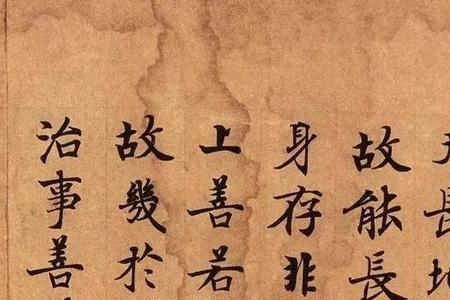 天長地
故能長
身存非
上善若
故幾於
治事善